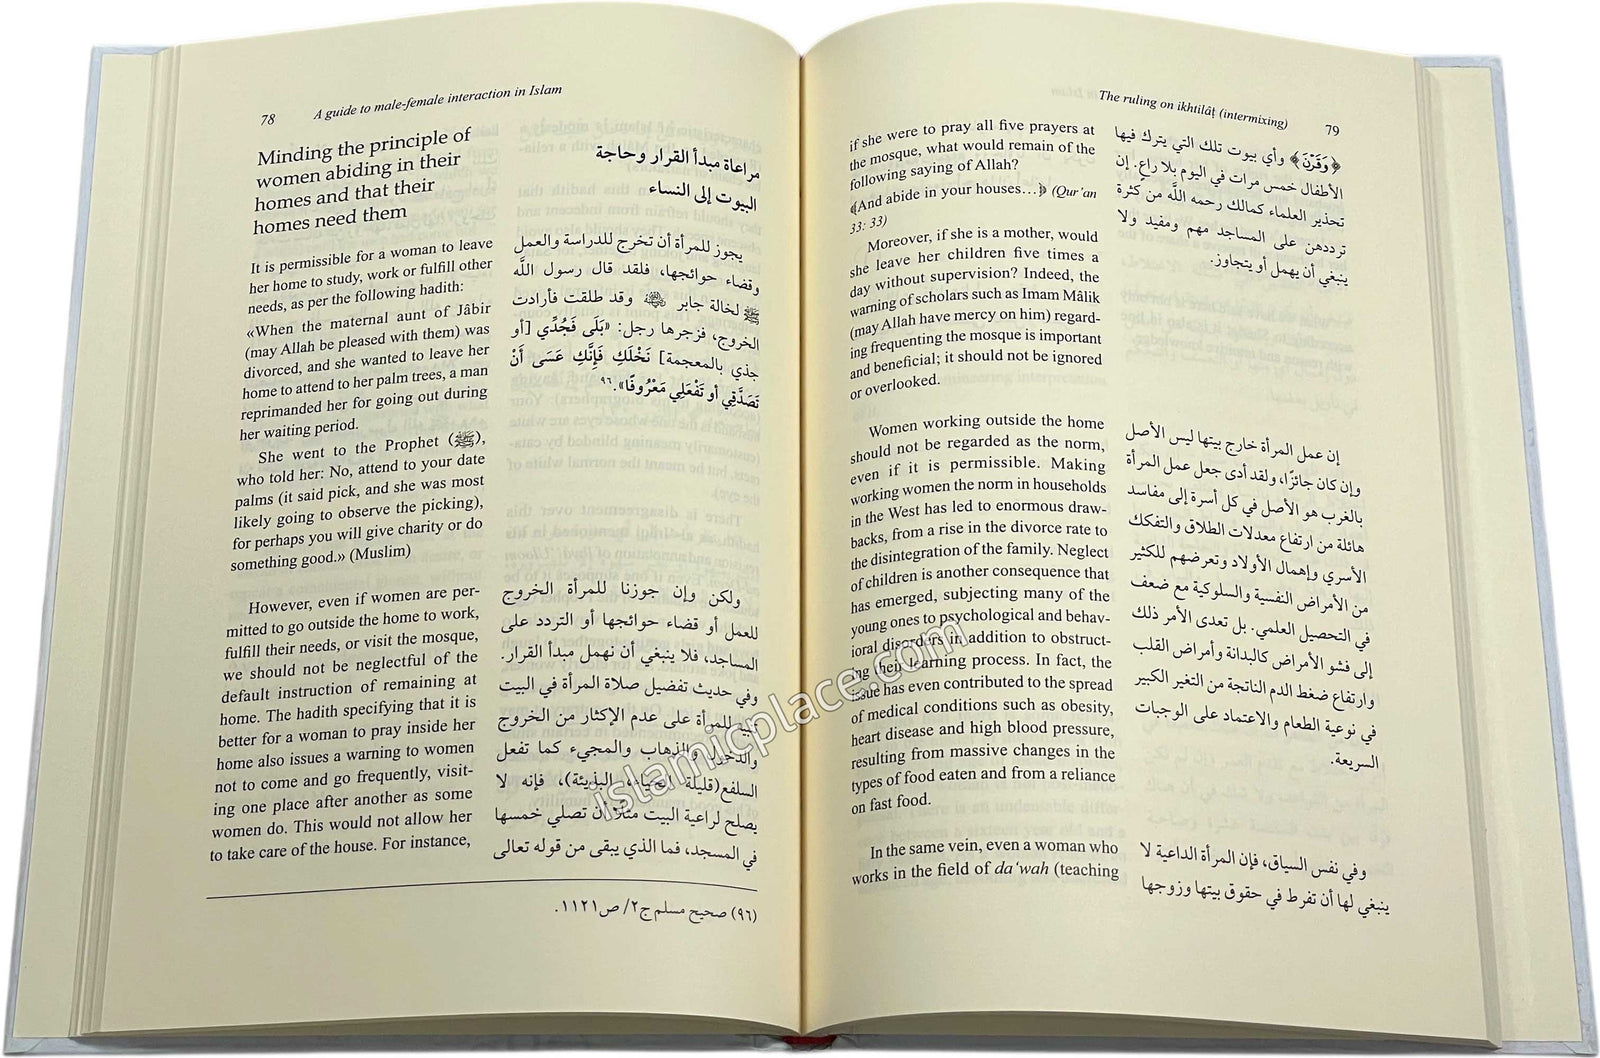 78
A guide to male-female interaction in Islam
Minding the principle of
women abiding in their
homes and that their
homes need them
It is permissible for a woman to leave
her home to study, work or fulfill other
needs, as per the following hadith:
«When the maternal aunt of Jâbir
(may Allah be pleased with them) was
divorced, and she wanted to leave her
home to attend to her palm trees, a man
reprimanded her for going out during
her waiting period.
She went to the Prophet (ﷺ),
who told her: No, attend to your date
palms (it said pick, and she was most
likely going to observe the picking),
for perhaps you will give charity or do
something good.» (Muslim)
However, even if women are per-
mitted to go outside the home to work,
fulfill their needs, or visit the mosque,
we should not be neglectful of the
default instruction of remaining at
home. The hadith specifying that it is
better for a woman to pray inside her
home also issues a warning to women
not to come and go frequently, visit-
ing one place after another as some
women do. This would not allow her
to take care of the house. For instance,
مراعاة مبدأ القرار وحاجة
البيوت إلى النساء
يجوز للمرأة أن تخرج للدراسة والعمل
وقضاء حوائجها، فلقد قال رسول اللَّه
ﷺ لخالة جابر وقد طلقت فأرادت
الخروج، فزجرها رجل: «بَلَى فَجُدِّي [أو
جذي بالمعجمة] نَخْلَكِ فَإِنَّكِ عَسَى أَنْ
تَصَدَّقِي أو تَفْعَلِي مَعْرُوفًا».٩٦
ولكن وإن جوزنا للمرأة الخروج
للعمل أو قضاء حوائجها أو التردد على
المساجد، فلا ينبغي أن نهمل مبدأ القرار.
وفي حديث تفضيل صلاة المرأة في البيت
تنبيه للمرأة على عدم الإكثار من الخروج
والدخول والذهاب والمجيء كما تفعل
السلفع (قليلة الحياء، البذيئة)، فإنه لا
يصلح لراعية البيت مثلًا أن تصلي خمسها
في المسجد، فما الذي يبقى من قوله تعالى
(٩٦) صحيح مسلم ج٢/ ص١١٢١.
The ruling on ikhtilâṭ (intermixing)
79
if she were to pray all five prayers at
the mosque, what would remain of the
following saying of Allah?
﴾And abide in your houses…﴿ (Qur’an
33: 33)
Moreover, if she is a mother, would
she leave her children five times a
day without supervision? Indeed, the
warning of scholars such as Imam Mâlik
(may Allah have mercy on him) regard-
ing frequenting the mosque is important
and beneficial; it should not be ignored
or overlooked.
Women working outside the home
should not be regarded as the norm,
even if it is permissible. Making
working women the norm in households
in the West has led to enormous draw-
backs, from a rise in the divorce rate to
the disintegration of the family. Neglect
of children is another consequence that
has emerged, subjecting many of the
young ones to psychological and behav-
ioral disorders in addition to obstruct-
ing their learning process. In fact, the
issue has even contributed to the spread
of medical conditions such as obesity,
heart disease and high blood pressure,
resulting from massive changes in the
types of food eaten and from a reliance
on fast food.
In the same vein, even a woman who
works in the field of da‘wah (teaching
﴿وَقَرْنَ﴾ وأي بيوت تلك التي يترك فيها
الأطفال خمس مرات في اليوم بلا راعٍ. إن
تحذير العلماء كمالك رحمه اللَّه من كثرة
ترددهن على المساجد مهم ومفيد ولا
ينبغي أن يهمل أو يتجاوز.
إن عمل المرأة خارج بيتها ليس الأصل
وإن كان جائزًا، ولقد أدى جعل عمل المرأة
بالغرب هو الأصل في كل أسرة إلى مفاسد
هائلة من ارتفاع معدلات الطلاق والتفكك
الأسري وإهمال الأولاد وتعرضهم للكثير
من الأمراض النفسية والسلوكية مع ضعف
في التحصيل العلمي. بل تعدى الأمر ذلك
إلى فشو الأمراض كالبدانة وأمراض القلب
وارتفاع ضغط الدم الناتجة من التغير الكبير
في نوعية الطعام والاعتماد على الوجبات
السريعة.
وفي نفس السياق، فإن المرأة الداعية لا
ينبغي لها أن تفرط في حقوق بيتها وزوجها
islamicplace.com